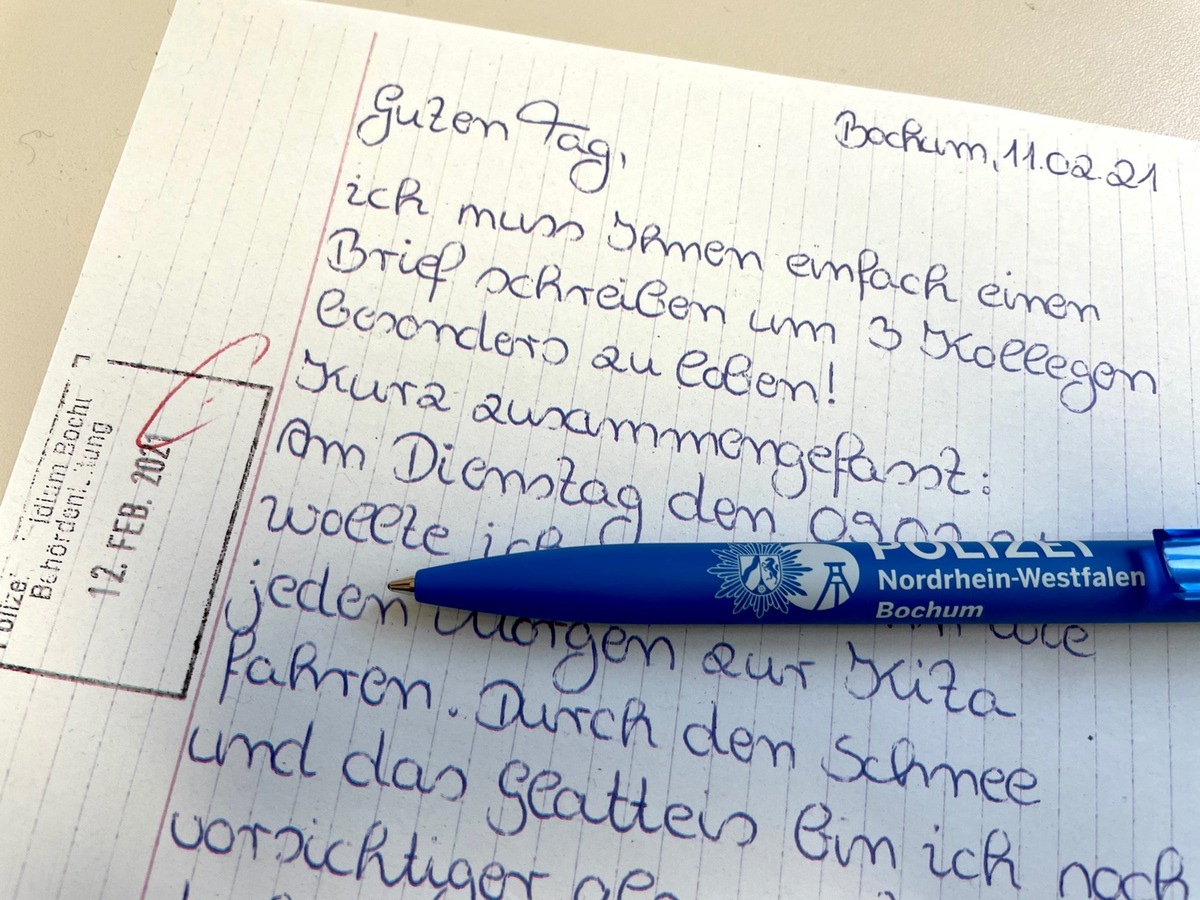 Bochum, 11.02.21
Guten Tag,
ich muss Ihnen einfach einen
Brief schreiben um 3 Kollegen
besonders zu loben!
Kurz zusammengefasst:
Am Dienstag den 09.02
wollte ich
jeden Morgen wie
zur Kita
fahren. Durch den Schnee
und das glatteis bin ich noch
vorsichtiger
Behörden
12. FEB. 2021
POLIZEI
Nordrhein-Westfalen
Bochum